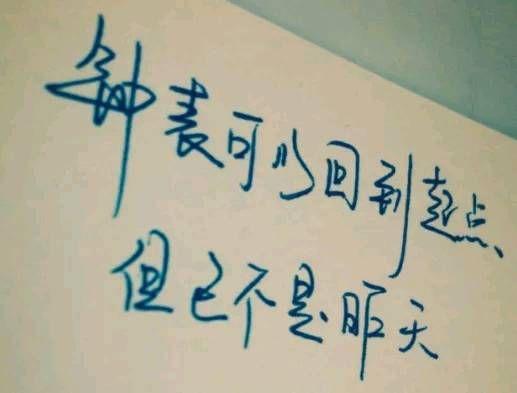 钟表可以回到起点
但已不是昨天